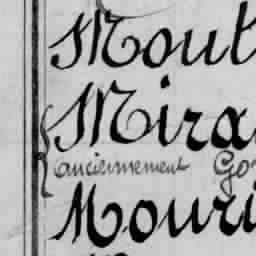 Mout
Mira
anciennement Go
Mouri